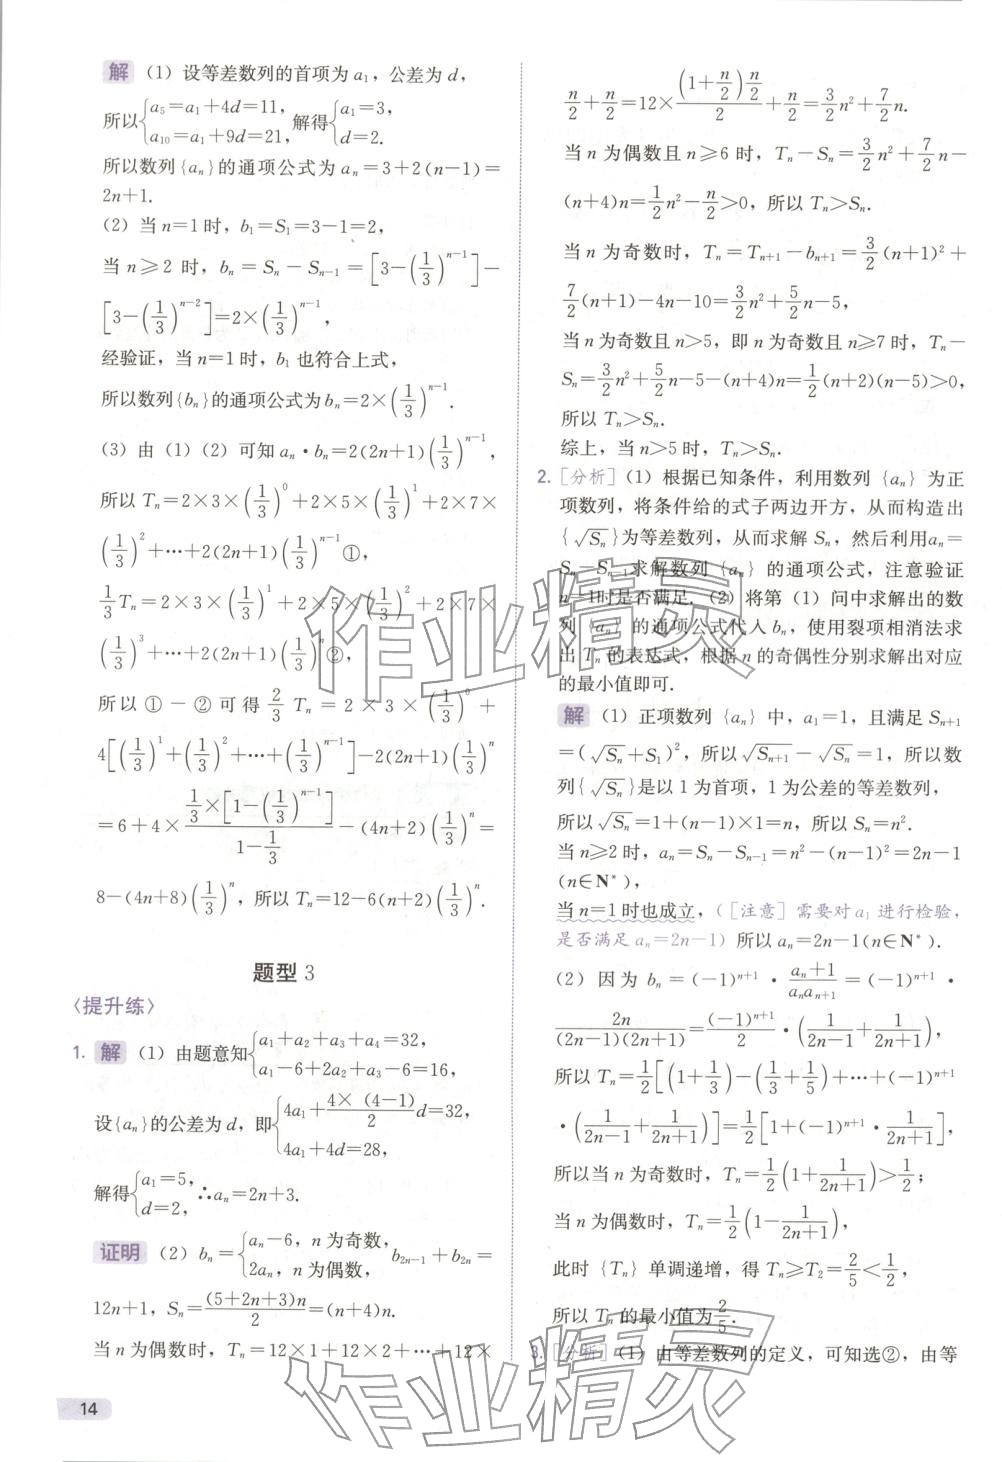 解 (1) 设等差数列的首项为 a₁, 公差为 d,
所以{a₅=a₁+4d=11, a₁₀=a₁+9d=21, 解得{a₁=3, d=2.
所以数列{aₙ}的通项公式为 aₙ=3+2(n-1)=
2n+1.
(2) 当 n=1 时, b₁=S₁=3-1=2,
当 n≥2 时, bₙ=Sₙ-Sₙ₋₁=[3-(1/3)ⁿ⁻¹]-
[3-(1/3)ⁿ⁻²]=2×(1/3)ⁿ⁻¹,
经验证, 当 n=1 时, b₁ 也符合上式,
所以数列{bₙ}的通项公式为 bₙ=2×(1/3)ⁿ⁻¹.
(3) 由 (1) (2) 可知 aₙ·bₙ=2(2n+1)(1/3)ⁿ⁻¹,
所以 Tₙ=2×3×(1/3)⁰+2×5×(1/3)¹+2×7×
(1/3)²+…+2(2n+1)(1/3)ⁿ⁻¹①,
1/3 Tₙ=2×3×(1/3)¹+2×5×(1/3)²+2×7×
(1/3)³+…+2(2n+1)(1/3)ⁿ②,
所以①-②可得 2/3 Tₙ=2×3×(1/3)⁰+
4[(1/3)¹+(1/3)²+…+(1/3)ⁿ⁻¹]-2(2n+1)(1/3)ⁿ
=6+4×(1/3×[1-(1/3)ⁿ⁻¹])/(1-1/3)-(4n+2)(1/3)ⁿ=
8-(4n+8)(1/3)ⁿ, 所以 Tₙ=12-6(n+2)(1/3)ⁿ.
题型 3
〈提升练〉
1. 解 (1) 由题意知{a₁+a₂+a₃+a₄=32, a₁-6+2a₂+a₃-6=16,
设{aₙ}的公差为 d, 即{4a₁+(4×(4-1))/2 d=32, 4a₁+4d=28,
解得{a₁=5, d=2, ∴aₙ=2n+3.
证明 (2) bₙ={aₙ-6, n 为奇数, 2aₙ, n 为偶数, b₂ₙ₋₁+b₂ₙ=
12n+1, Sₙ=(5+2n+3)n/2=(n+4)n.
当 n 为偶数时, Tₙ=12×1+12×2+…+12×
n/2+n/2=12×((1+n/2)n/2)/2+n/2=3/2 n²+7/2 n.
当 n 为偶数且 n≥6 时, Tₙ-Sₙ=3/2 n²+7/2 n-
(n+4)n=1/2 n²-n/2>0, 所以 Tₙ>Sₙ.
当 n 为奇数时, Tₙ=Tₙ₊₁-bₙ₊₁=3/2(n+1)²+
7/2(n+1)-4n-10=3/2 n²+5/2 n-5,
当 n 为奇数且 n>5, 即 n 为奇数且 n≥7 时, Tₙ-
Sₙ=3/2 n²+5/2 n-5-(n+4)n=1/2(n+2)(n-5)>0,
所以 Tₙ>Sₙ.
综上, 当 n>5 时, Tₙ>Sₙ.
2. [分析] (1) 根据已知条件, 利用数列{aₙ}为正
项数列, 将条件给的式子两边开方, 从而构造出
{√Sₙ}为等差数列, 从而求解 Sₙ, 然后利用aₙ=
Sₙ-Sₙ₋₁求解数列{aₙ}的通项公式, 注意验证
n=1时是否满足. (2) 将第 (1) 问中求解出的数
列{aₙ}的通项公式代入 bₙ, 使用裂项相消法求
出 Tₙ的表达式, 根据 n 的奇偶性分别求解出对应
的最小值即可.
解 (1) 正项数列{aₙ}中, a₁=1, 且满足 Sₙ₊₁
=(√Sₙ+S₁)², 所以√Sₙ₊₁-√Sₙ=1, 所以数
列{√Sₙ}是以 1 为首项, 1 为公差的等差数列,
所以√Sₙ=1+(n-1)×1=n, 所以 Sₙ=n².
当 n≥2 时, aₙ=Sₙ-Sₙ₋₁=n²-(n-1)²=2n-1
(n∈N*),
当 n=1 时也成立, ([注意] 需要对 a₁ 进行检验,
是否满足 aₙ=2n-1) 所以 aₙ=2n-1(n∈N*).
(2) 因为 bₙ=(-1)ⁿ⁺¹·(aₙ+1)/(aₙaₙ₊₁)=(-1)ⁿ⁺¹·
2n/((2n-1)(2n+1))=(-1)ⁿ⁺¹/2·(1/(2n-1)+1/(2n+1)),
所以 Tₙ=1/2[(1+1/3)-(1/3+1/5)+…+(-1)ⁿ⁺¹
·(1/(2n-1)+1/(2n+1))]=1/2[1+(-1)ⁿ⁺¹·1/(2n+1)],
所以当 n 为奇数时, Tₙ=1/2(1+1/(2n+1))>1/2;
当 n 为偶数时, Tₙ=1/2(1-1/(2n+1)),
此时{Tₙ}单调递增, 得 Tₙ≥T₂=2/5<1/2,
所以 Tₙ的最小值为2/5.
3. [分析] (1) 由等差数列的定义, 可知选②, 由等
14
作业精灵
作业精灵